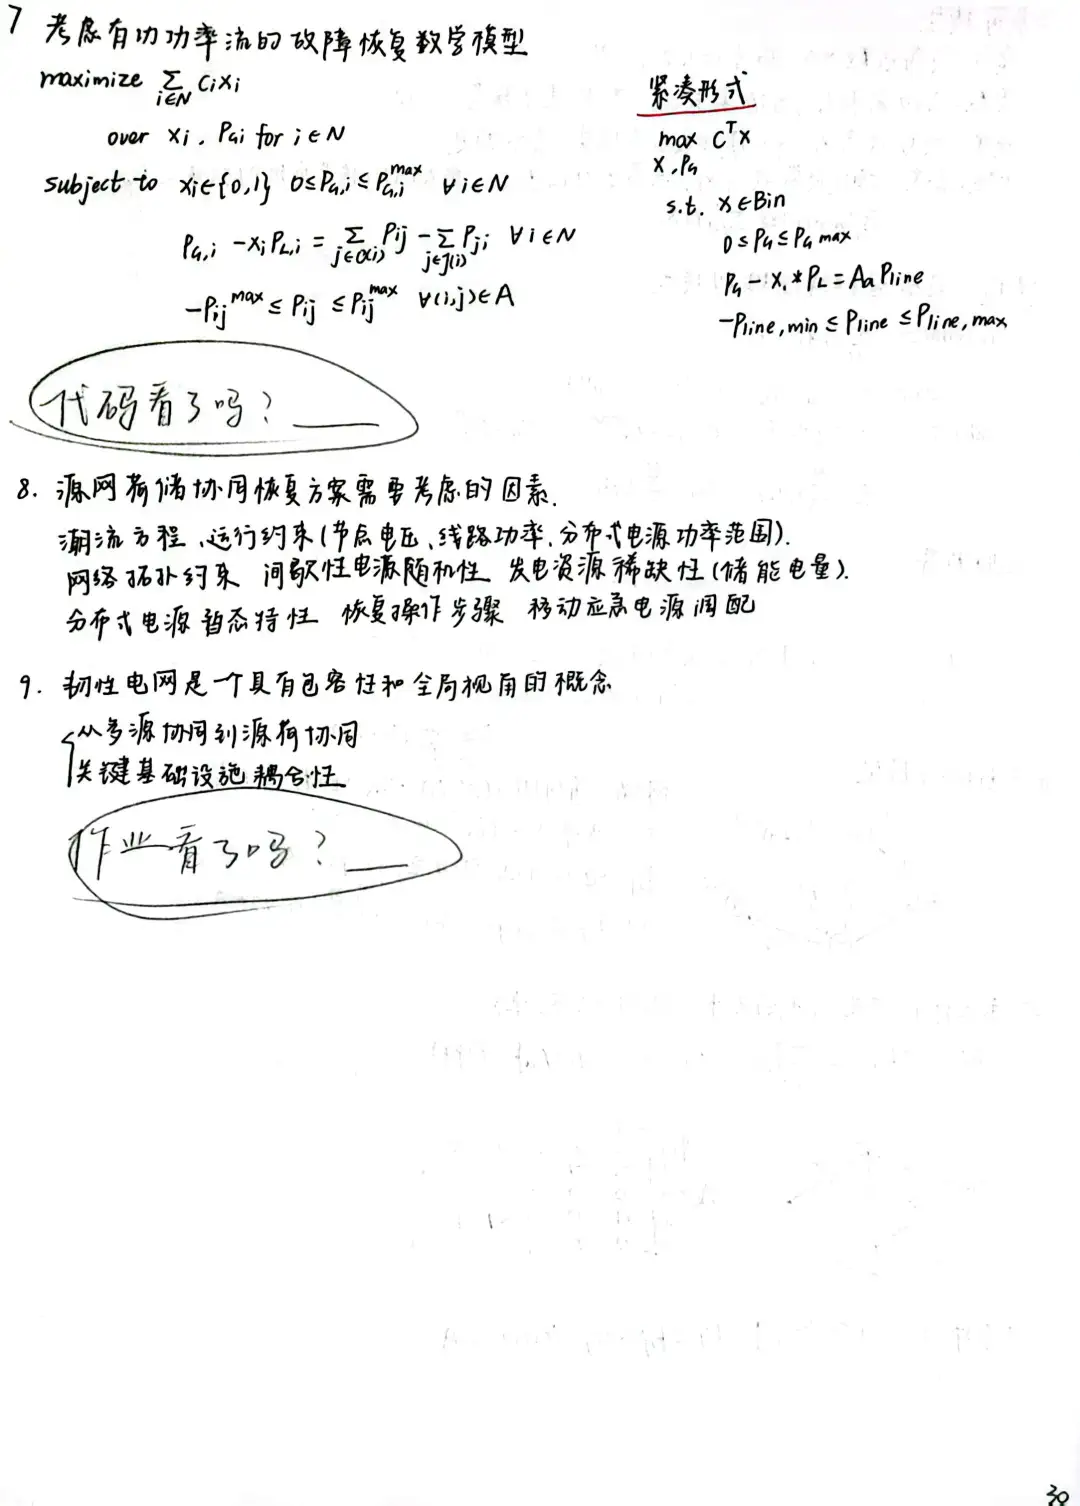 7 考虑有功功率流的故障恢复数学模型
maximize ∑_{i∈N} CiXi
over Xi, PGi for i∈N
subject to Xi∈{0,1} 0≤PG,i≤PG,i^max ∀i∈N
PG,i - XiPL,i = ∑_{j∈O(i)} Pij - ∑_{j∈J(i)} Pji ∀i∈N
-Pij^max ≤ Pij ≤ Pij^max ∀(i,j)∈A
紧凑形式
max C^T X
X, PG
s.t. X∈Bin
0≤PG≤PG max
PG - X.*PL = Aa Pline
-Pline,min ≤ Pline ≤ Pline,max
代码看了吗?___
8. 源网荷储协同恢复方案需要考虑的因素.
潮流方程、运行约束(节点电压、线路功率、分布式电源功率范围).
网络拓扑约束 间歇性电源随机性 发电资源稀缺性(储能电量).
分布式电源暂态特性 恢复操作步骤 移动应急电源调配
9. 韧性电网是一个具有包容性和全局视角的概念
从多源协同到源荷协同
关键基础设施耦合性
作业看了吗?___
30